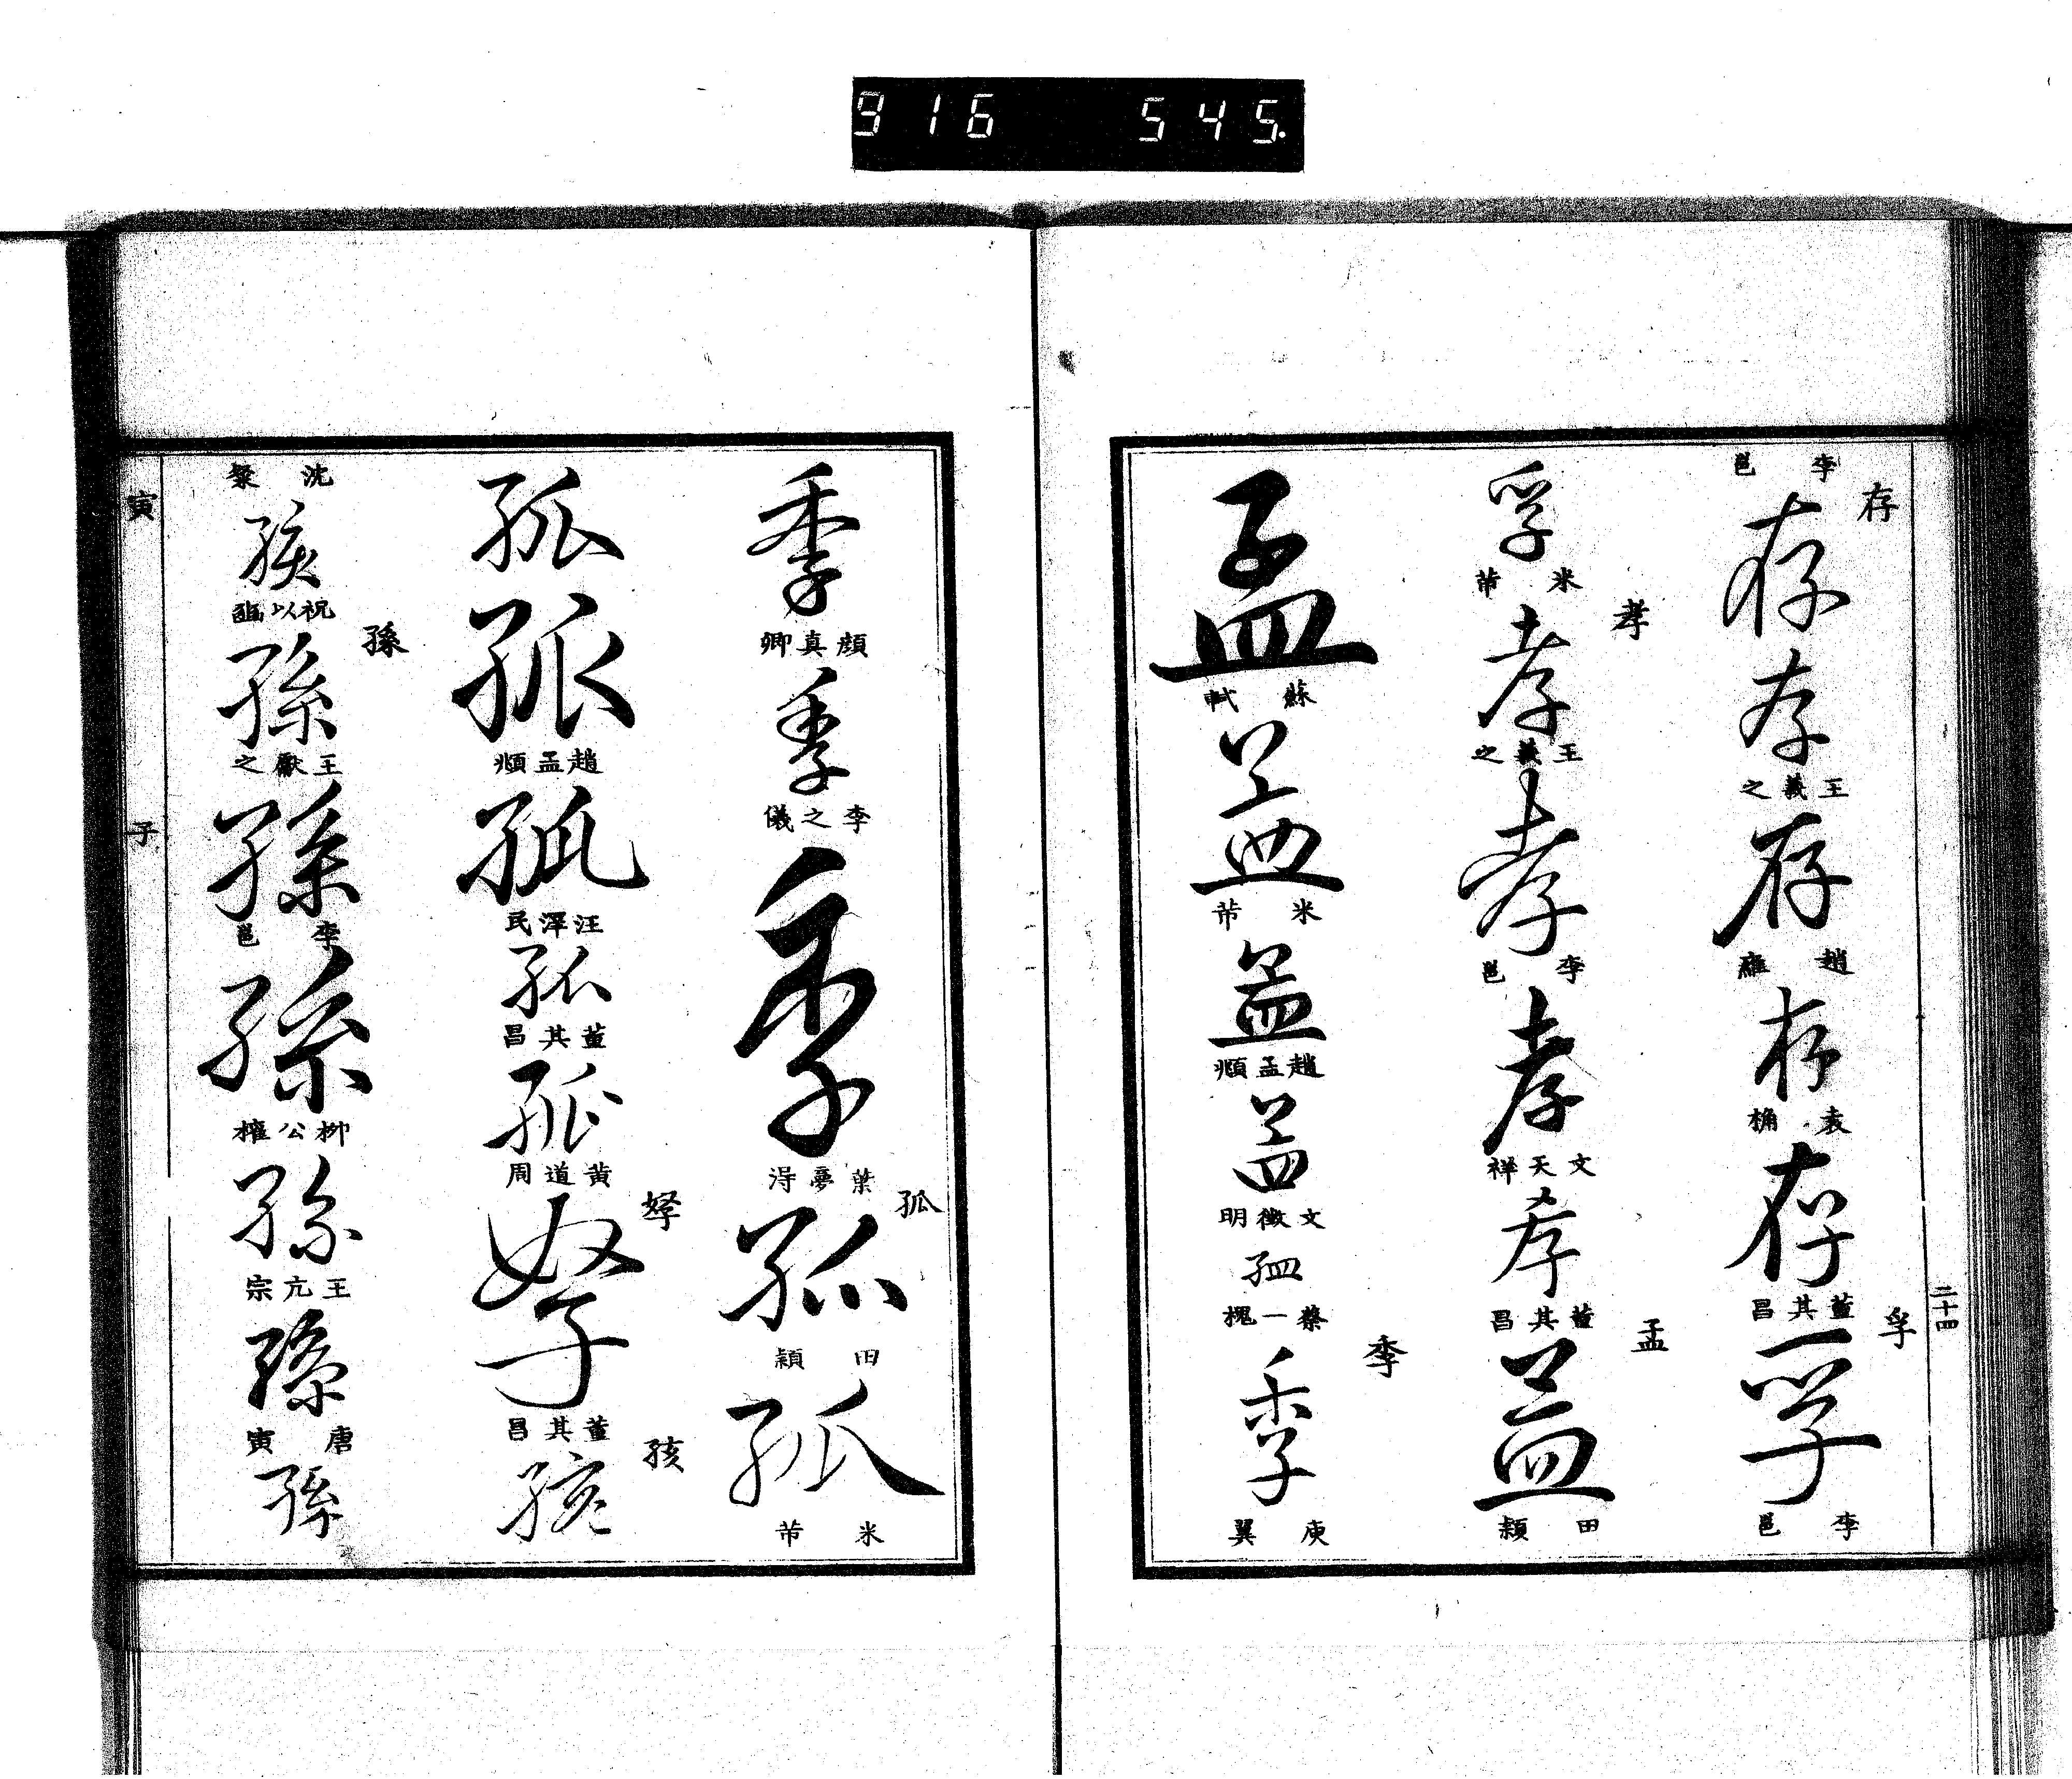 916 545.
存
李邕
存
存
王羲之
存
趙雍
存
袁桷
存
董其昌
孚
孚
李邕
二十四
孚
米芾
孝
孝
王羲之
孝
李邕
孝
文天祥
孝
董其昌
孟
孟
田穎
孟
蘇軾
孟
米芾
孟
趙孟頫
孟
文徵明
孟
蔡一槐
季
季
庾翼
季
顏真卿
季
李之儀
季
葉夢得
孤
孤
田穎
孤
米芾
孤
孤
趙孟頫
孤
汪澤民
孤
董其昌
孤
黃道周
孥
孥
董其昌
孩
孩
沈粲
孩
祝以豳
孫
孫
王獻之
孫
李邕
孫
柳公權
孫
王亢宗
孫
唐寅
孫
寅
子